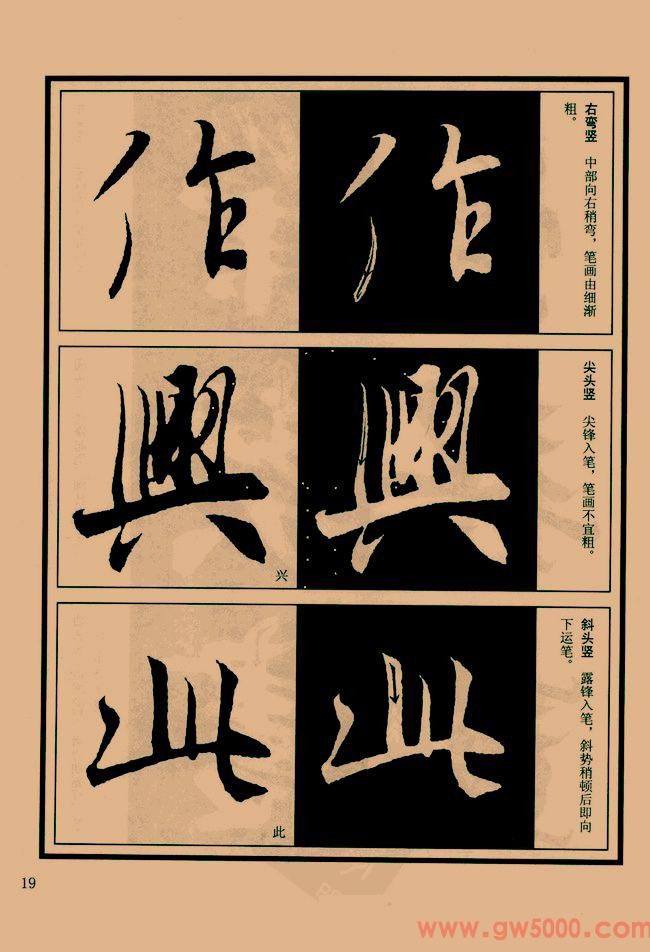 作
右弯竖 中部向右稍弯，笔画由细渐
粗。
作
興
兴
興
尖头竖 尖锋入笔，笔画不宜粗。
此
此
此
斜头竖 露锋入笔，斜势稍顿后即向
下运笔。
19
www.gw5000.com